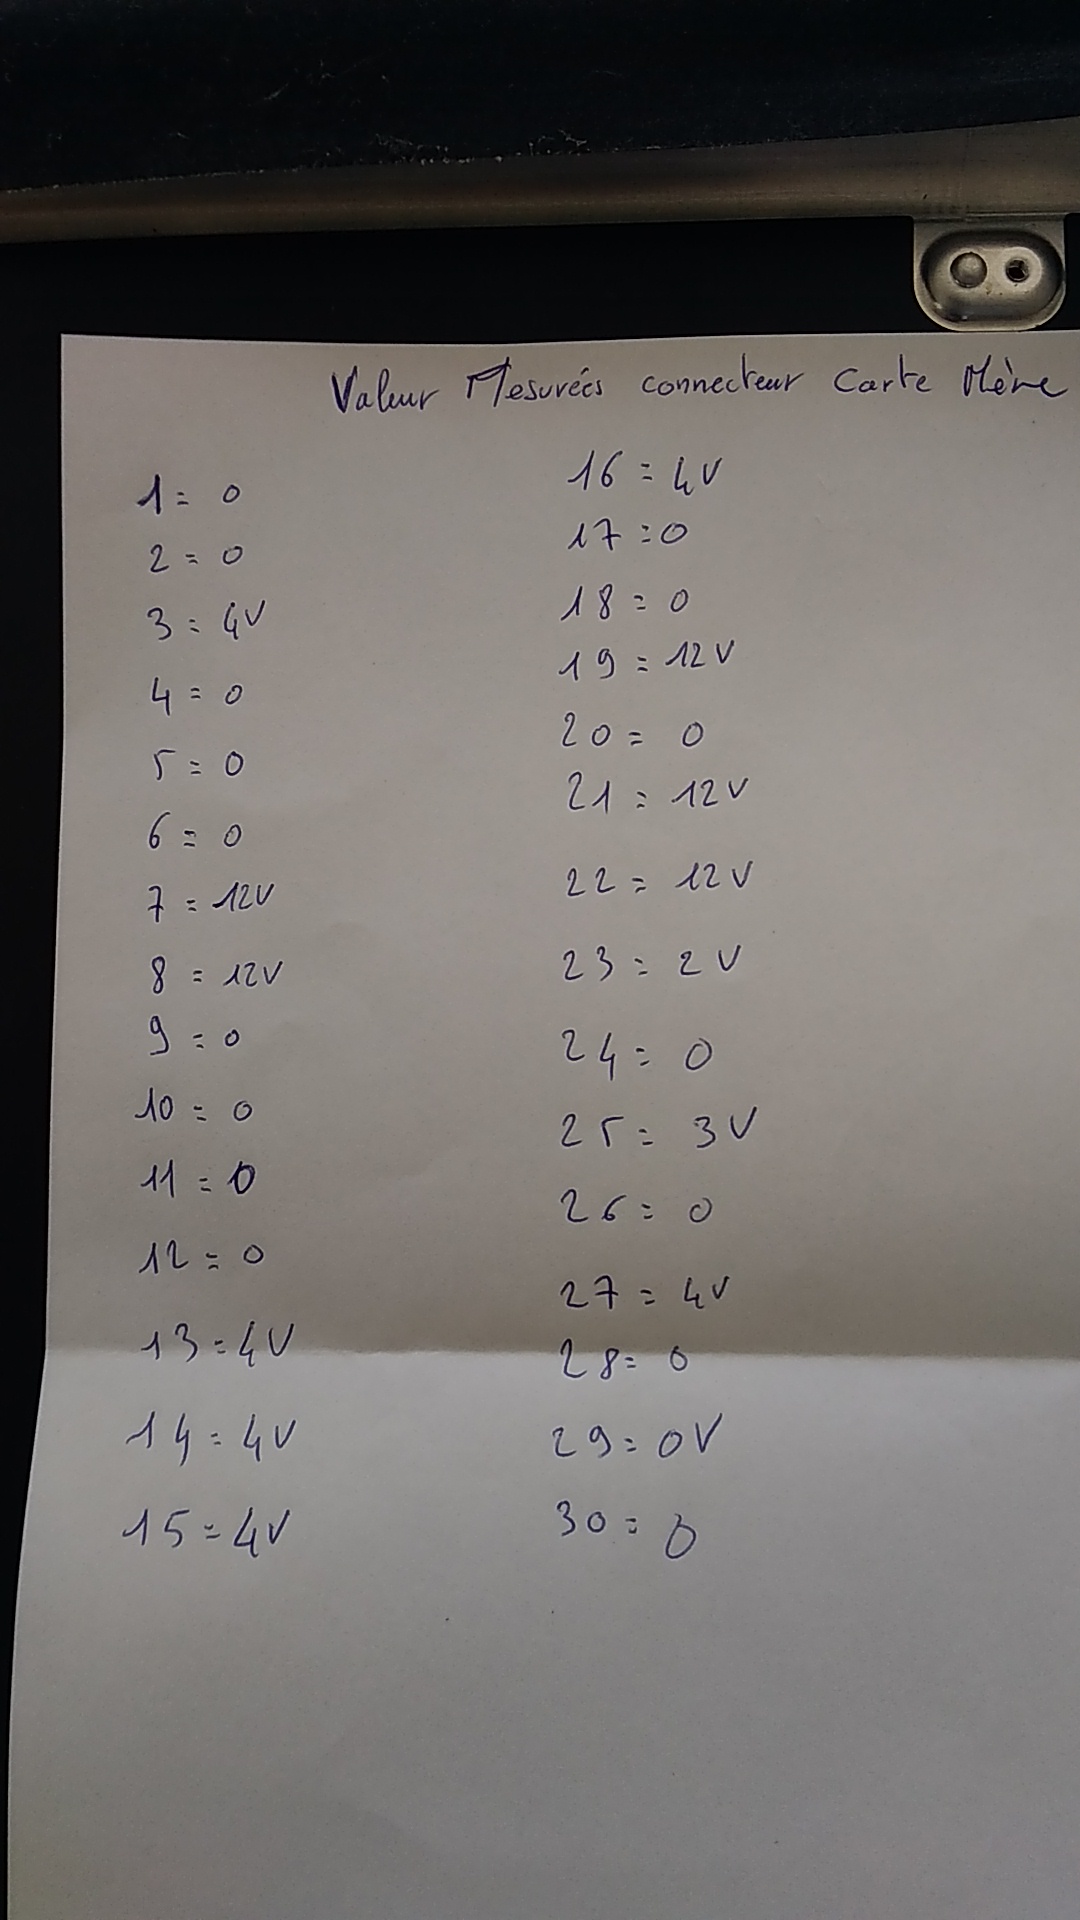 Valeur Mesurées connecteur Carte Mère
1 = 0
2 = 0
3 = 4V
4 = 0
5 = 0
6 = 0
7 = 12V
8 = 12V
9 = 0
10 = 0
11 = 0
12 = 0
13 = 4V
14 = 4V
15 = 4V
16 = 4V
17 = 0
18 = 0
19 = 12V
20 = 0
21 = 12V
22 = 12V
23 = 2V
24 = 0
25 = 3V
26 = 0
27 = 4V
28 = 0
29 = 0V
30 = 0